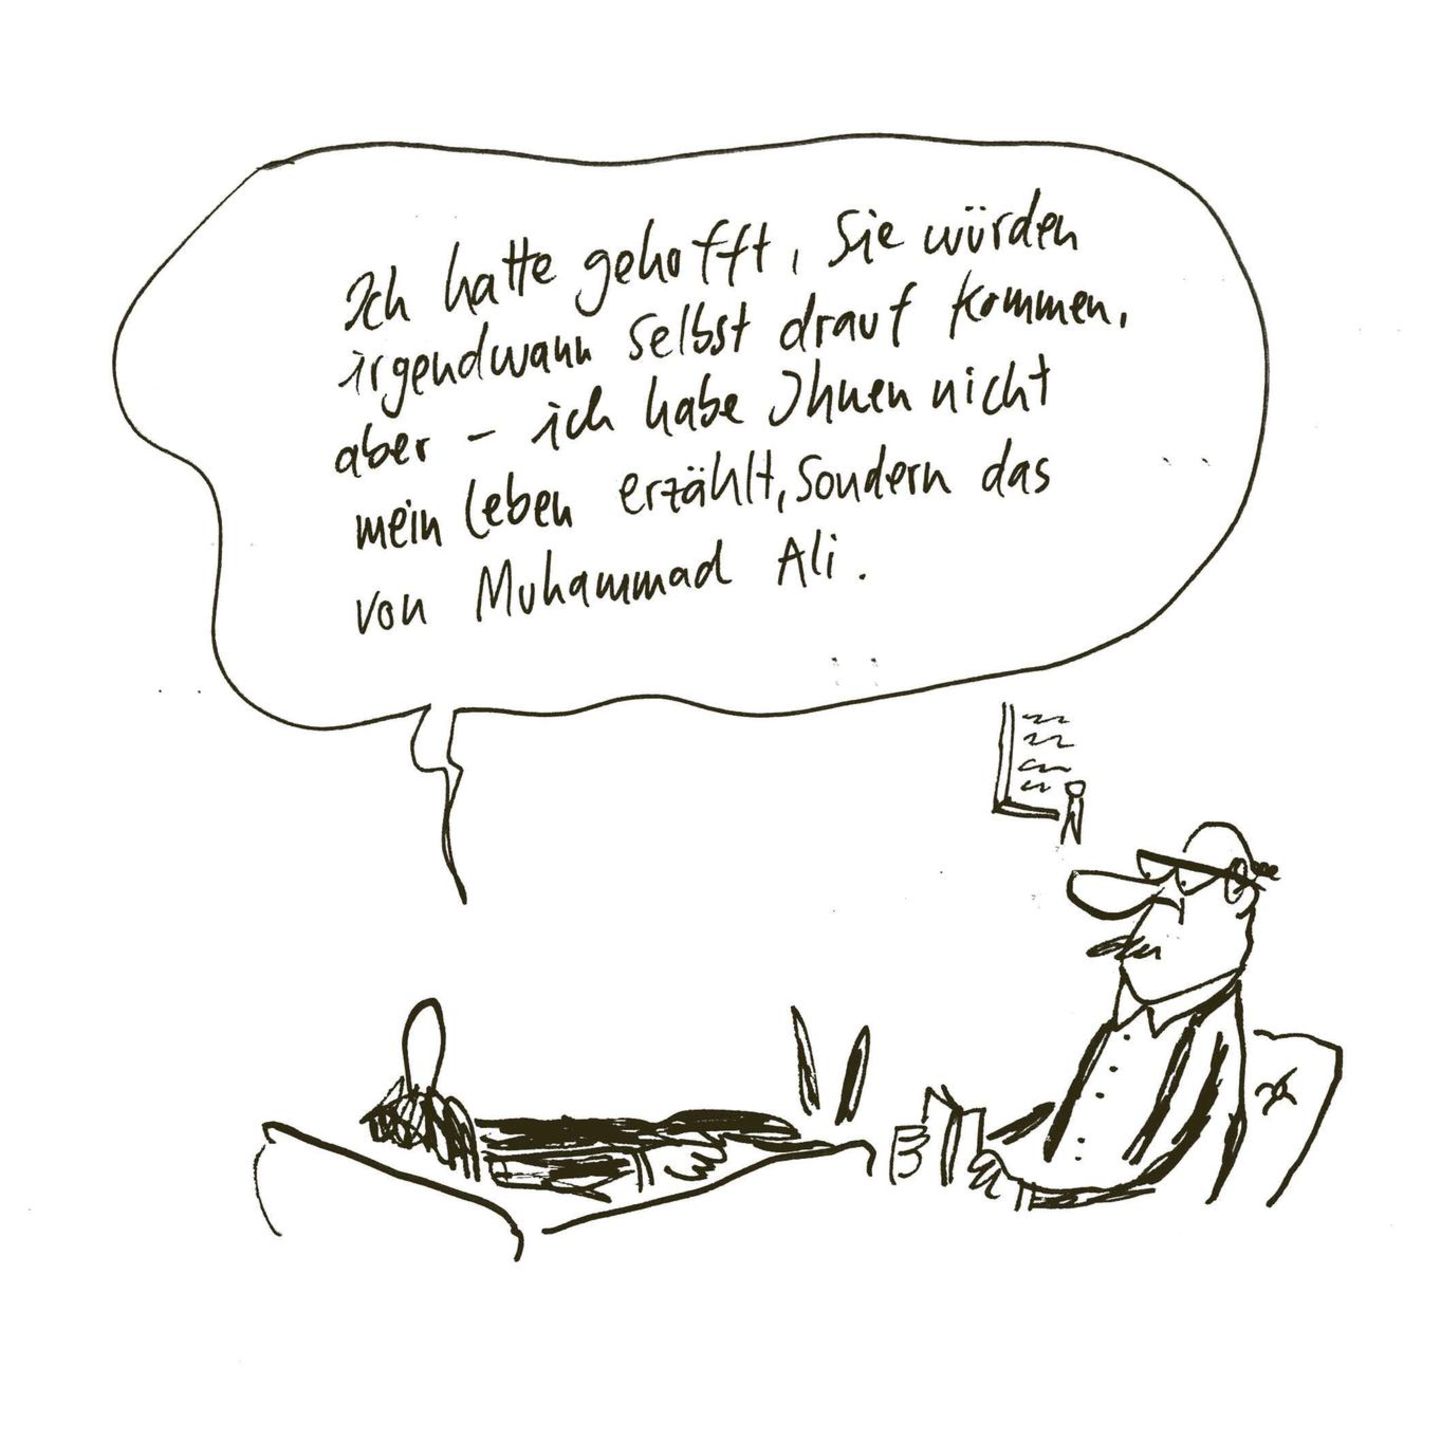 Ich hatte gehofft, Sie würden
irgendwann selbst drauf kommen,
aber - ich habe Ihnen nicht
mein Leben erzählt, sondern das
von Muhammad Ali.